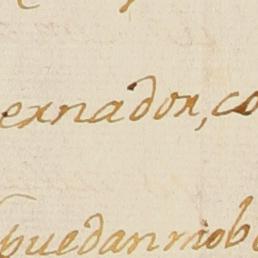 ernador, co
puedan mob